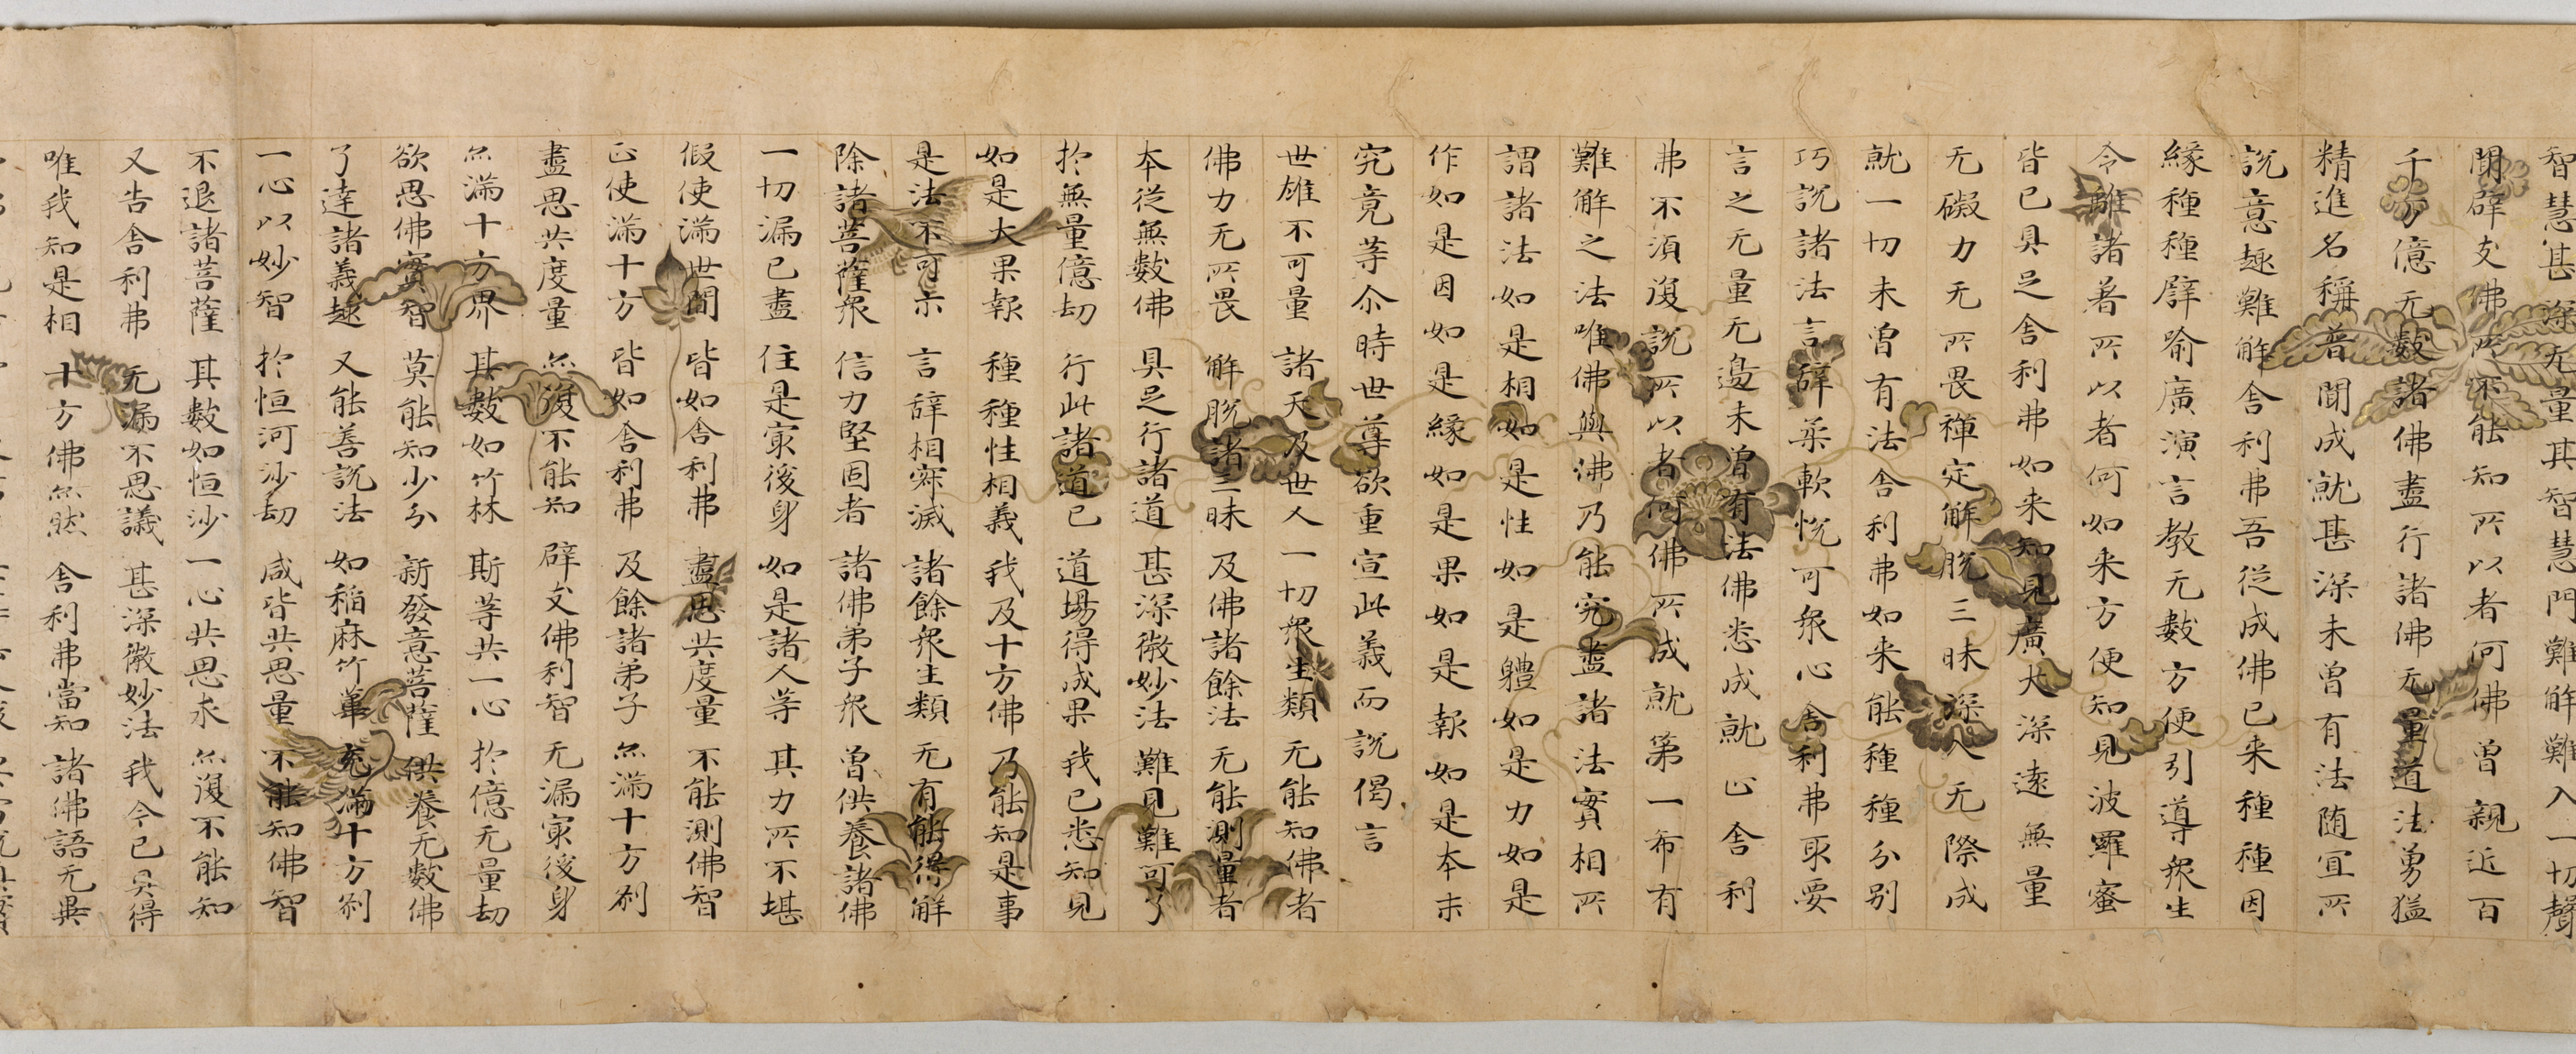 智慧甚深无量其智慧門難解難入一切聲
聞辟支佛所不能知所以者何佛曾親近百
千万億无數諸佛盡行諸佛无量道法勇猛
精進名稱普聞成就甚深未曾有法随冝所
說意趣難解舍利弗吾従成佛已来種種因
緣種種譬喻廣演言教无數方便引導衆生
令離諸著所以者何如来方便知見波羅蜜
皆已具足舍利弗如来知見廣大深遠無量
无礙力无所畏禅定解脫三昧深入无際成
就一切未曾有法舍利弗如来能種種分別
巧說諸法言辞柔軟悅可衆心舍利弗取要
言之无量无邊未曾有法佛悉成就止舍利
弗不須復說所以者何佛所成就第一希有
難解之法唯佛與佛乃能究盡諸法實相所
謂諸法如是相如是性如是體如是力如是
作如是因如是緣如是果如是報如是本末
究竟等尒時世尊欲重宣此義而說偈言
世雄不可量 諸天及世人 一切衆生類 无能知佛者
佛力无所畏 解脫諸三昧 及佛諸餘法 无能測量者
本従無數佛 具足行諸道 甚深微妙法 難見難可了
扵無量億劫 行此諸道已 道場得成果 我已悉知見
如是大果報 種種性相義 我及十方佛 乃能知是事
是法不可示 言辞相寂滅 諸餘衆生類 无有能得解
除諸菩薩衆 信力堅固者 諸佛弟子衆 曾供養諸佛
一切漏已盡 住是㝡後身 如是諸人等 其力所不堪
假使滿世間 皆如舍利弗 盡思共度量 不能測佛智
正使滿十方 皆如舍利弗 及餘諸弟子 亦滿十方刹
盡思共度量 亦復不能知 辟支佛利智 无漏㝡後身
亦滿十方界 其數如竹林 斯等共一心 扵億无量劫
欲思佛實智 莫能知少分 新發意菩薩 供養无數佛
了達諸義趣 又能善說法 如稲麻竹葦 充滿十方刹
一心以妙智 扵恒河沙劫 咸皆共思量 不能知佛智
不退諸菩薩 其數如恒沙 一心共思求 亦復不能知
又告舍利弗 无漏不思議 甚深微妙法 我今已具得
唯我知是相 十方佛亦然 舍利弗當知 諸佛語无異